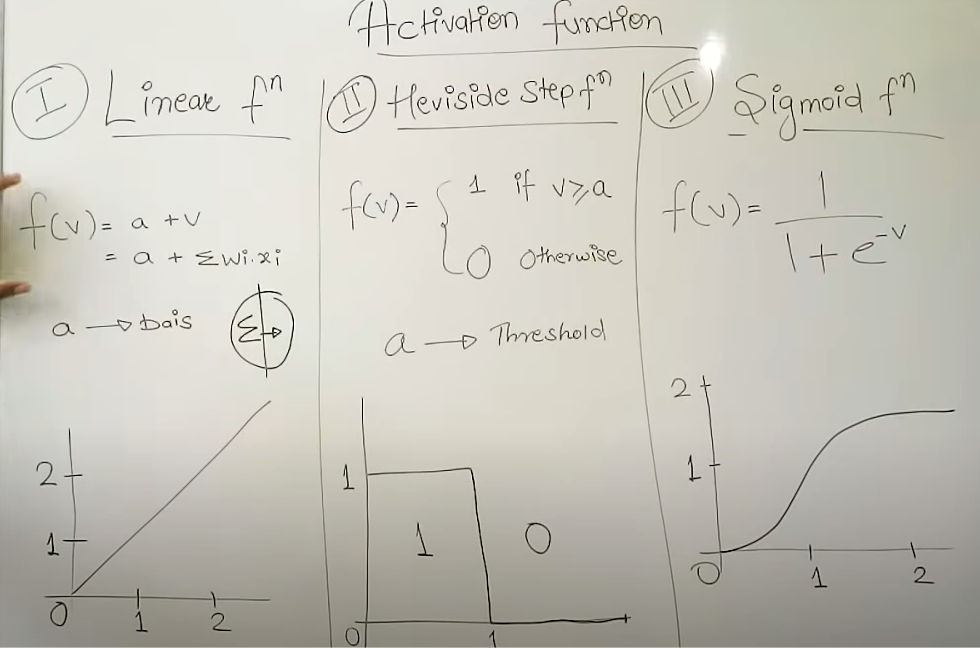 Activation function
I Linear fⁿ
f(v) = a + v
= a + Σwi.xi
a → bais
Σ
2
1
0 1 2
II Heviside Step fⁿ
f(v) = { 1 if v ≥ a
0 otherwise
a → Threshold
1
1 0
0 1
III Sigmoid fⁿ
f(v) = 1 / 1 + e^-v
2
1
0 1 2